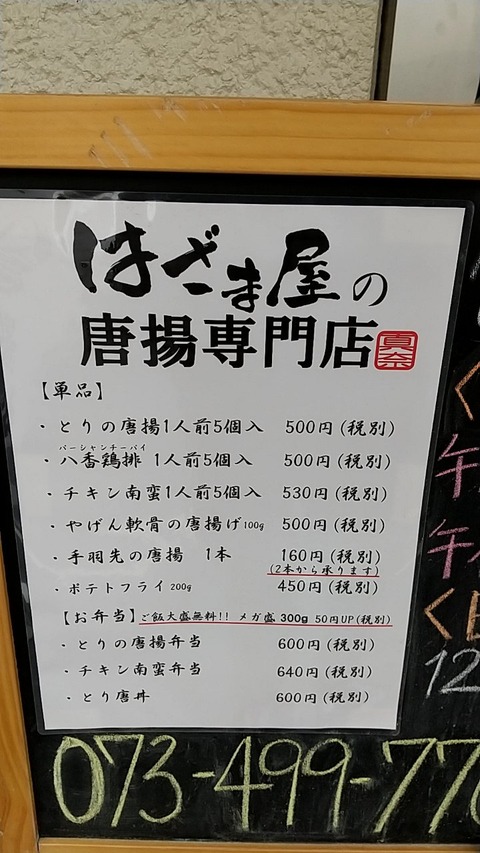 はざま屋の
唐揚専門店
真奈
【単品】
・とりの唐揚1人前5個入 500円(税別)
パーシャンチーパイ
・八香鶏排 1人前5個入 500円(税別)
・チキン南蛮1人前5個入 530円(税別)
・やげん軟骨の唐揚げ100g 500円(税別)
・手羽先の唐揚 1本 160円(税別)
(2本から承ります)
・ポテトフライ200g 450円(税別)
【お弁当】ご飯大盛無料!! メガ盛 300g 50円UP(税別)
・とりの唐揚弁当 600円(税別)
・チキン南蛮弁当 640円(税別)
・とり唐丼 600円(税別)
く
午
午
く
12
073-499-77